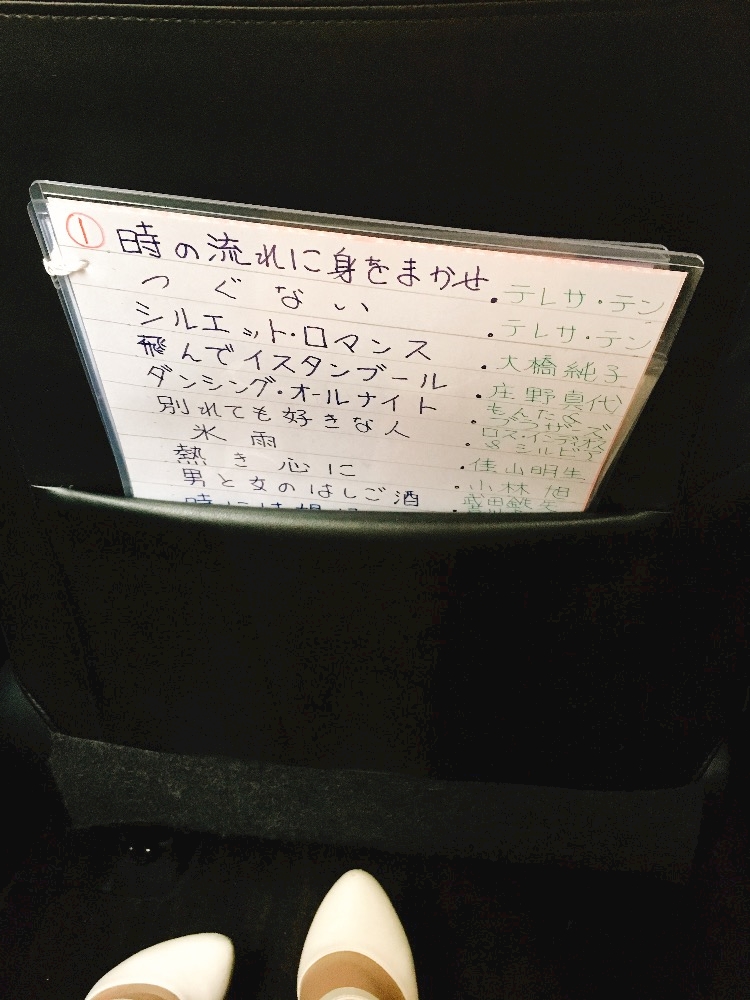 ① 時の流れに身をまかせ ・テレサ・テン
つぐない ・テレサ・テン
シルエット・ロマンス ・大橋純子
飛んでイスタンブール ・庄野真代
ダンシング・オールナイト ・もんた&ブラザーズ
別れても好きな人 ・ロス・インディオス&シルビア
氷雨 ・佳山明生
熱き心に ・小林旭
男と女のはしご酒 ・武田鉄矢